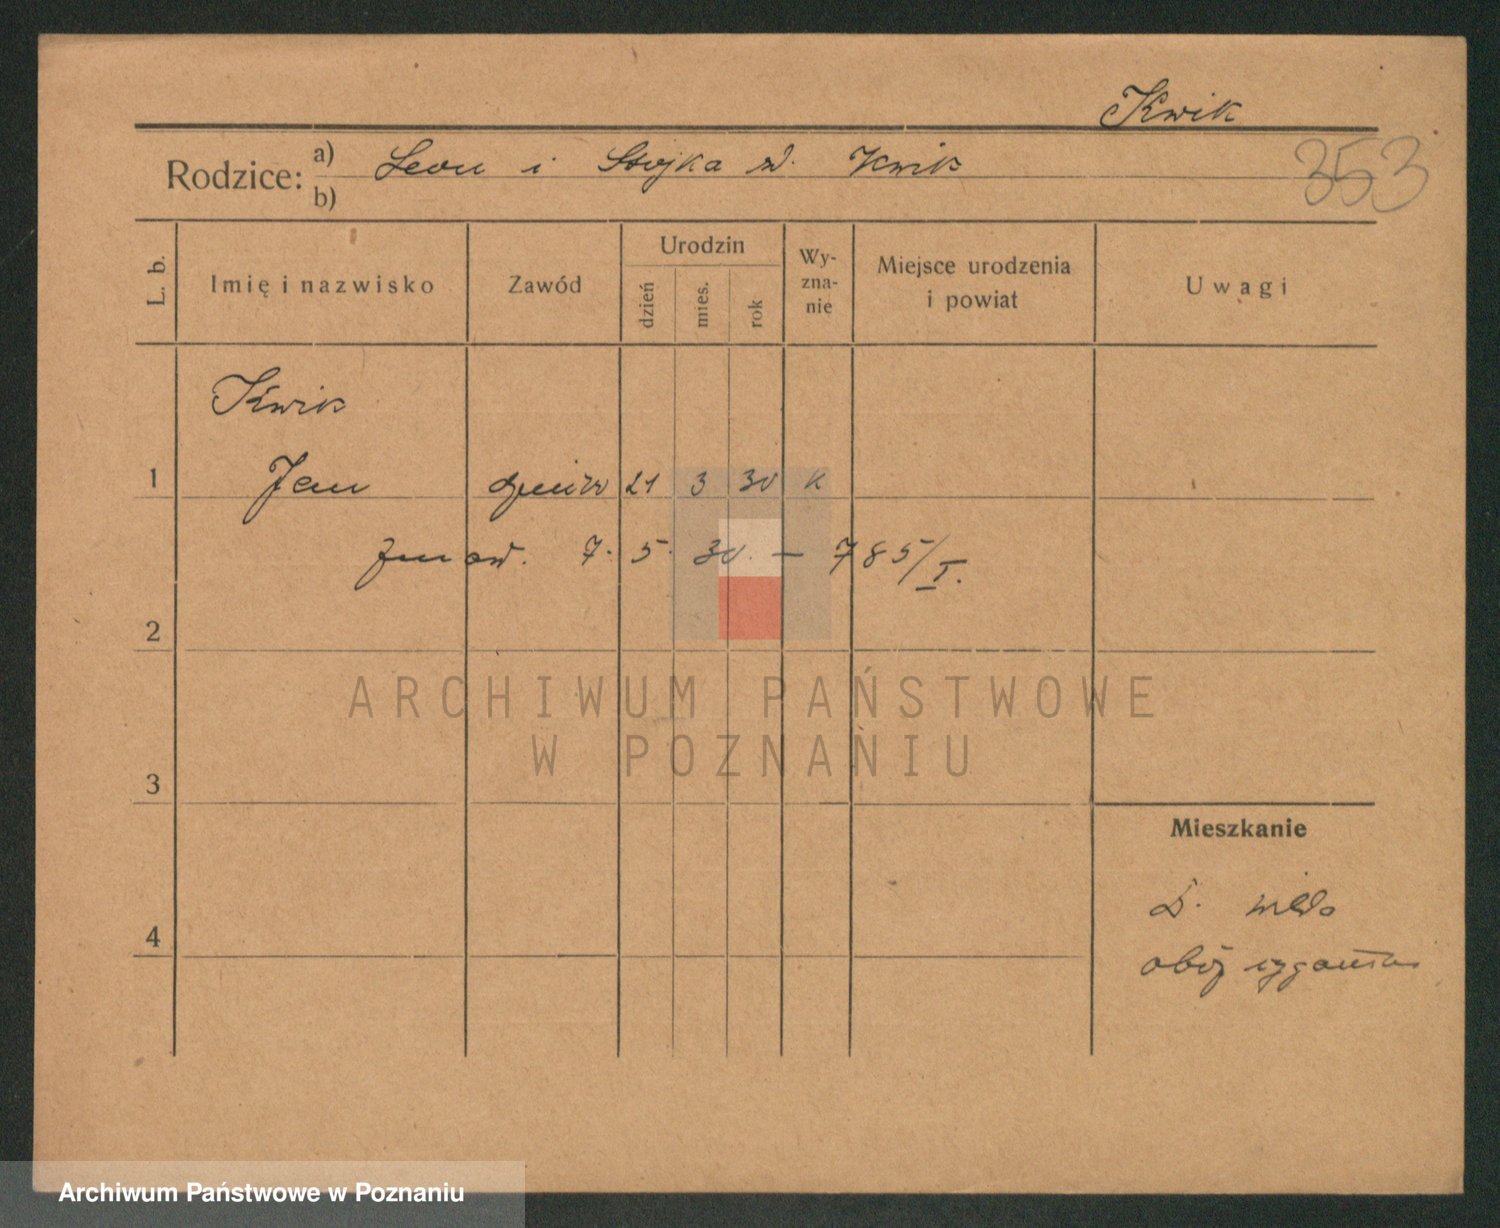 Kwik
353
Rodzice: a) Leon i Stojka z d. Kwik
b)
L. b. Imię i nazwisko Zawód Urodzin dzień mies. rok Wyznanie Miejsce urodzenia i powiat Uwagi
Kwik
1 Jan 21 3 30 k
zm 7. 5. 30. — 785/I.
2
ARCHIWUM PAŃSTWOWE
W POZNANIU
3
Mieszkanie
4
obóz cygański
Archiwum Państwowe w Poznaniu